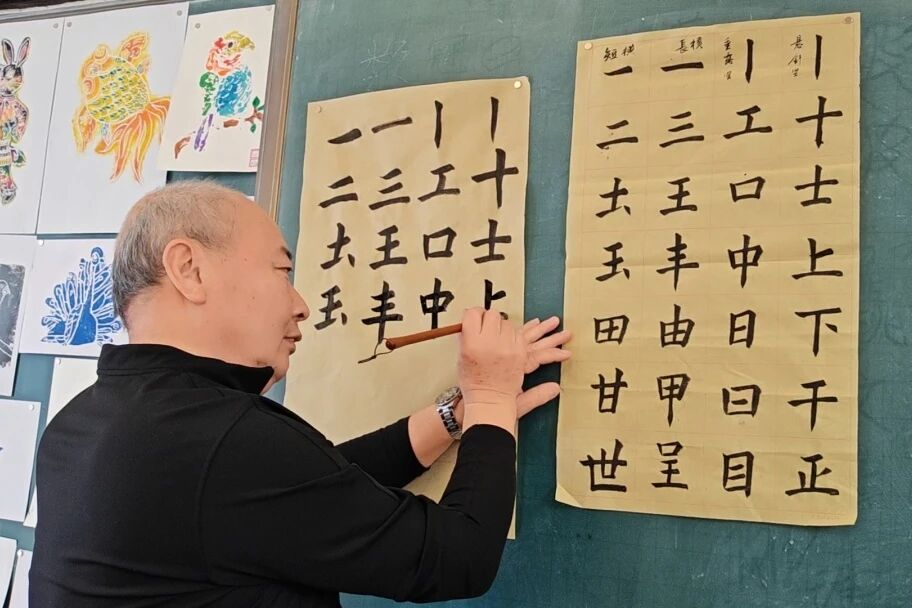 悬針竖
丨十士上下干正
垂露竖
丨工口中日曰目
長横
一三王丰由甲呈
短横
一二圡玉田甘世
丨十士上
丨工口中
一三王丰
一二圡玉